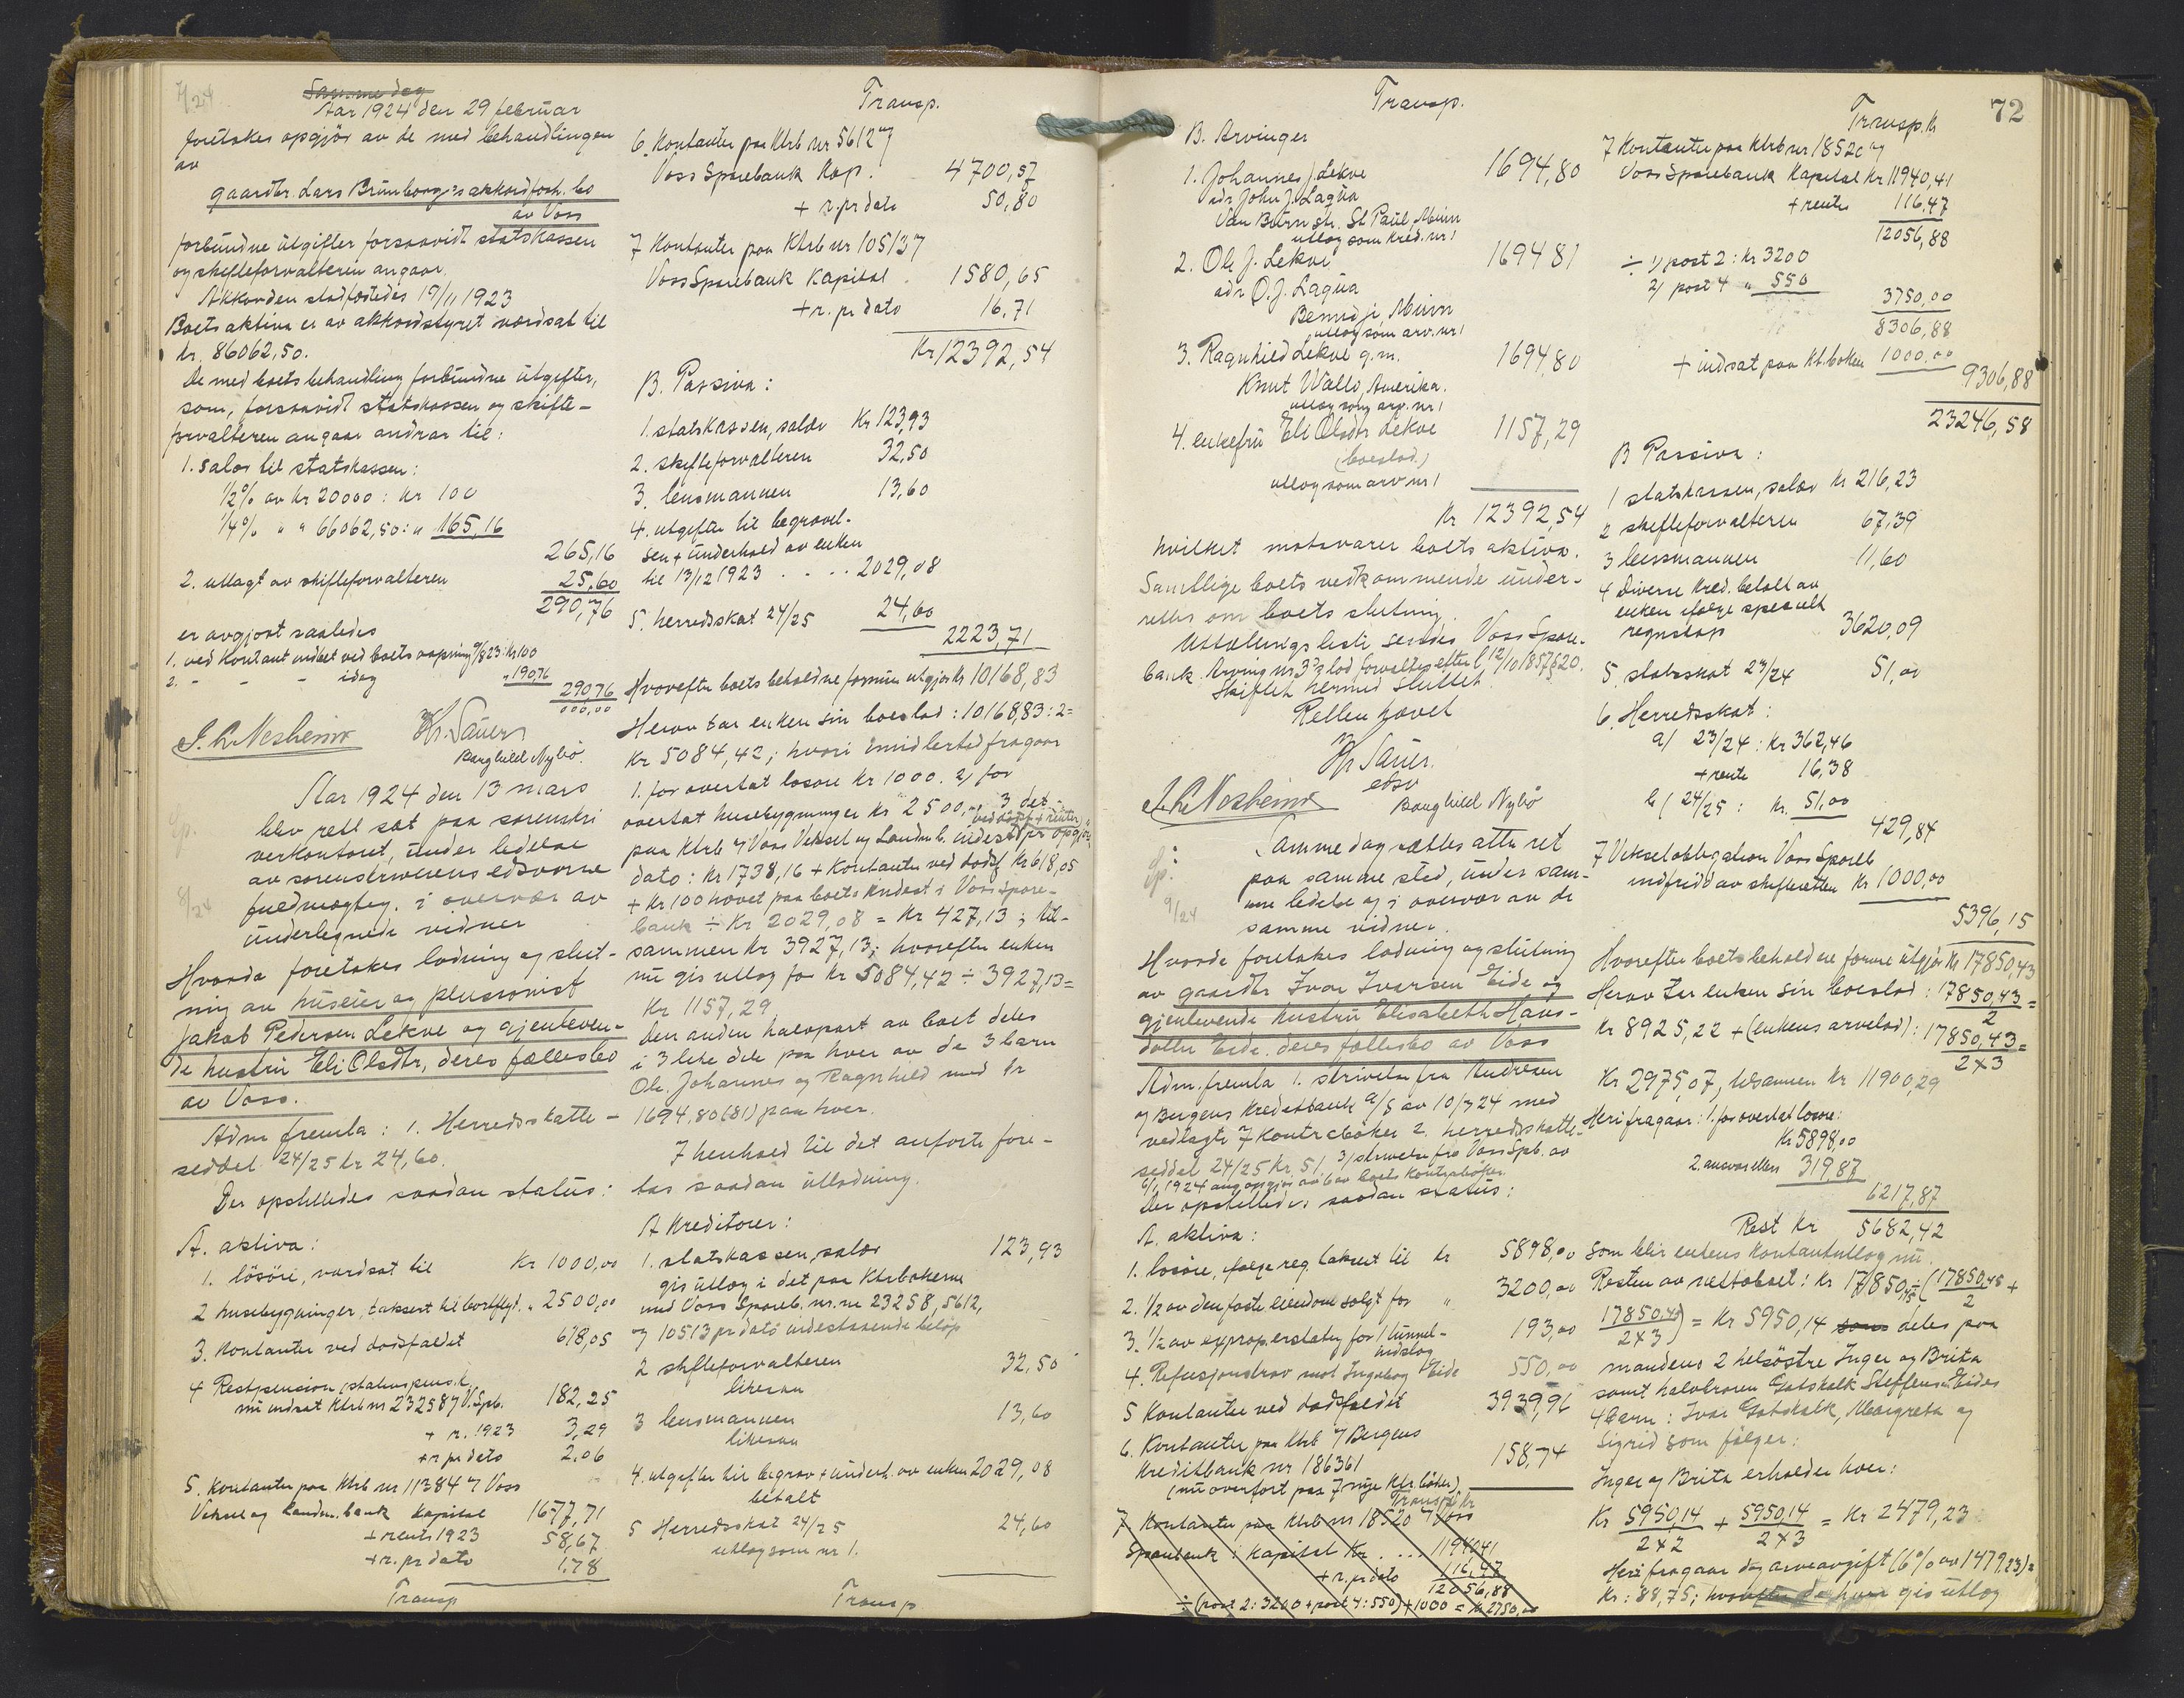 7/24
Samme dag
Aar 1924 den 29 februar
foretokes opgjör av de med behandlingen
av
gaardbr. Lars Brunborg's akkordforh. bo
av Voss
forbundne utgifter forsaavidt statskassen
og skifteforvalteren angaar.
Akkorden stadfæstedes 19/11 1923
Boets aktiva er av akkordstyret værdsat til
kr. 86062,50.
De med boets behandling forbundne utgifter,
som, forsaavidt statskassen og skifte-
forvalteren angaar andrar til:
1. salær til statskassen:
1/2% av kr 20000: kr 100
1/4% " " 66062,50: " 165,16
265,16
2. utlagt av skifteforvalteren 25,60
290,76
er avgjort saaledes
1. ved kontant indbet ved boets aapning 9/8 23: kr 100
2. - - - idag " 190,76
290,76
000,00
J. L. Nesheim Hr. Sauer
Borghild Nybö.
Aar 1924 den 13 mars
blev rett sat paa sorenskri
verkontoret, under ledelse
av sorenskriverens edsvorne
fuldmægtig, i overvær av
undertegnede vidner
8/24
Hvorda foretokes lodning og slut-
ning av huseier og pensionist
Jakob Pedersen Lekve og gjenleven-
de hustru Eli Olsdtr, deres fællesbo
av Voss.
Adm fremla: 1. Herredsskatte-
seddel 24/25 kr 24,60.
Der opstilledes saadan status:
A. aktiva:
1. lösöre, værdsat til kr 1000,00
2 husebygninger, taksert til bortflyt. " 2500,00
3. Kontanter ved dodsfaldet 618,05
4 Restpension, statens pens.k,
nu indsat Ktrb nr 23258 7 V. Spb. 182,25
+ r. 1923 3,29
+ r pr dato 2,06
5. Kontanter paa Ktrb nr 11384 7 Voss
Veksel og Landm. bank Kapital 1677,71
+ rente 1923 58,67
+ r. pr dato 1,78
Transp
Transp.
6. Kontanter paa Ktrb nr 5612 7
Voss Sparebank Kap. 4700,57
+ r. pr dato 50,80
7 Kontanter paa Ktrb nr 10513 7
Voss Sparebank Kapital 1580,65
+ r. pr dato 16,71
Kr 12392,54
B. Passiva:
1. statskassen, salær Kr 123,93
2. skifteforvalteren 32,50
3. lensmannen 13,60
4. utgifter til begravel-
sen + underhold av enken
til 13/12 1923 . . . . 2029,08
5. herredsskat 24/25 24,60
2223,71
Hvorefter boets beholdne formue utgjör kr 10168,83
Herav tar enken sin boeslod: 10168,83:2=
Kr 5084,42; hvori imidlertid fragaar
1. for overtat losore kr 1000. 2) for
overtat husebygninger kr 2500,- 3 det
ved dödsf + renter
paa Ktrb 7 Voss Veksel og Landm b. indest pr opgjörs
dato: Kr 1738,16 + Kontanter ved dodsf Kr 618,05
+ Kr 100 hævet paa boets indest i Voss Spare-
bank ÷ Kr 2029,08 = Kr 427,13; til-
sammen Kr 3927,13; hvorefter enken
nu gis utlæg for Kr 5084,42 ÷ 3927,13=
Kr 1157,29
Den anden halvpart av boet deles
i 3 like dele paa hver av de 3 barn
Ole, Johannes og Ragnhild med kr
1694,80(81) paa hver.
I henhold til det anforte fore-
tas saadan utlodning.
A Kreditorer:
1. statskassen, salær 123,93
gis utlæg i det paa Ktrbokerne
med Voss Spareb. nr. nr 23258, 5612,
og 10513 pr dato indestaaende belöp
2 skifteforvalteren 32,50
likesaa
3 lensmannen 13,60
likesaa
4. utgifter til begrav + underh. av enken 2029,08
betalt
5 Herredsskat 24/25 24,60
utlæg som nr 1.
Transp
Transp.
B. Arvinger
1. Johannes J. Lekve 1694,80
adr John J. Laqua
Van Buren str. St Paul, Minn
utlæg som kred. nr 1
2. Ole J. Lekve 1694 81
adr O. J. Laqua
Bemidji, Minn
utlæg som arv. nr 1
3. Ragnhild Lekve g.m. 1694,80
Knut Wallo, Amerika.
utlæg som arv. nr 1
4. enkefru Eli Olsdtr Lekve 1157,29
(boeslod.)
utlæg som arv nr 1
Kr 12392,54
hvilket motsvarer boets aktiva.
Samtlige boets vedkommende under-
rettes om boets slutning.
Uttællings liste sendes Voss Spare-
bank. Arving nr 3's lod forvaltes efter l. 12/10 1857 § 20.
Skiftet hermed sluttet.
Retten hævet
Hr Sauer.
edsv
J. L. Nesheim Borghild Nybö
9/24
Samme dag sattes atter ret
paa samme sted, under sam-
me ledelse og i overvær av de
samme vidner.
Hvorda foretokes lodning og slutning
av gaardbr Ivar Ivarsen Eide og
gjenlevende hustru Elisabeth Hans-
datter Eide, deres fællesbo av Voss
Adm. fremla 1. skrivelse fra Andresen
og Bergens Kreditbank a/s av 10/3 24 med
vedlagte 7 Kontraboker 2. herredsskatte-
seddel 24/25 kr. 51. 3) skrivelse fra Voss Spb. av
6/1 1924 ang opgjör av 6 av boets kontraböker.
Der opstilledes saadan status:
A. aktiva:
1. losöre, ifølge reg. taksert til kr 5898,00
2. 1/2 av den faste eiendom solgt for " 3200,00
3. 1/2 av expropr.erstatng for 1 tunnel-
indslag 193,00
4. Refusjonskrav mot Ingeborg Eide 550,00
5 Kontanter ved dodsfaldet 3939,96
6. Kontanter paa Ktrb 7 Bergens
Kreditbank nr 186361 158,74
(nu overfort paa 7 nye Ktr.böker)
Transp. kr
7. Kontanter paa Ktrb nr 18520 7 Voss
Sparebank i kapital Kr . . . . 11940,41
+ r. pr dato 116,47
12056,88
÷ (post 2: 3200 + post 4: 550) + 1000 = kr 2750,00
72
Transp. kr
7 Kontanter paa Ktrb nr 18520 7
Voss Sparebank Kapital Kr 11940,41
+ rente 116,47
12056,88
÷ 1) post 2: kr 3200
2) post 4 " 550
3750,00
8306,88
+ indsat paa Kt.boken 1000,00
9306,88
23246,58
B Passiva:
1 statskassen, salær Kr 216,23
2 skifteforvalteren 67,39
3 lensmannen 11,60
4 Diverse kred. betalt av
enken ifølge specielt
regnskap 3620,09
5. statsskat 23/24 51,00
6. Herredsskat:
a) 23/24: Kr 362,46
+ rente 16,38
b) 24/25: Kr. 51,00
429,84
7 Vekselobligation Voss Spareb
indfridd av skifteretten Kr 1000,00
5396,15
Hvorefter boets beholdne formue utgjör Kr 17850,43
Herav tar enken sin boeslod: 17850,43 / 2 =
Kr 8925,22 + (enkens arvelod): 17850,43 / 2x3 =
Kr 2975,07, tilsammen Kr 11900,29
Heri fragaar: 1. for overtat losore:
Kr 5898,00
2. ansvar ellers 319,87
6217,87
Rest kr 5682,42
som blir enkens kontantutlæg nu.
Resten av nettoboet: Kr 17850,43 ÷ (17850,43 / 2 +
17850,43 / 2x3) = Kr 5950,14 som deles paa
mandens 2 helsöstre Inger og Brita
samt halvbroren Gotskalk Steffensen Eides
4 barn: Ivar, Gotskalk, Margreta og
Sigrid som fölger:
Inger og Brita erholder hver:
Kr 5950,14 / 2x2 + 5950,14 / 2x3 = Kr 2479,23
Heri fragaar dog arveavgift (6% av 1479,23)=
Kr: 88,75; hvorefter de hver gis utlæg